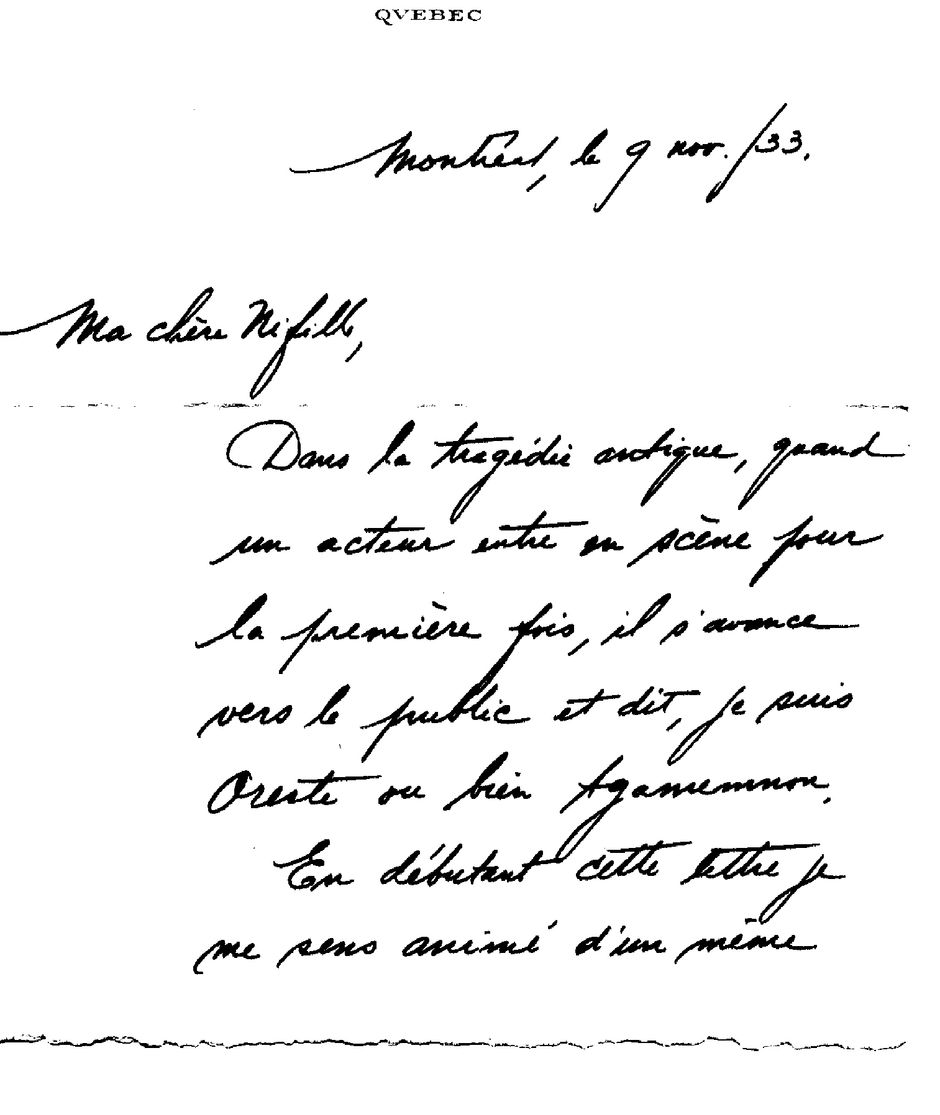 QVEBEC
Montréal, le 9 nov. /33.
Ma chère Nifille,
Dans la tragédie antique, quand
un acteur entre en scène pour
la première fois, il s'avance
vers le public et dit, je suis
Oreste ou bien Agamemnon.
En débutant cette lettre je
me sens animé d'un même